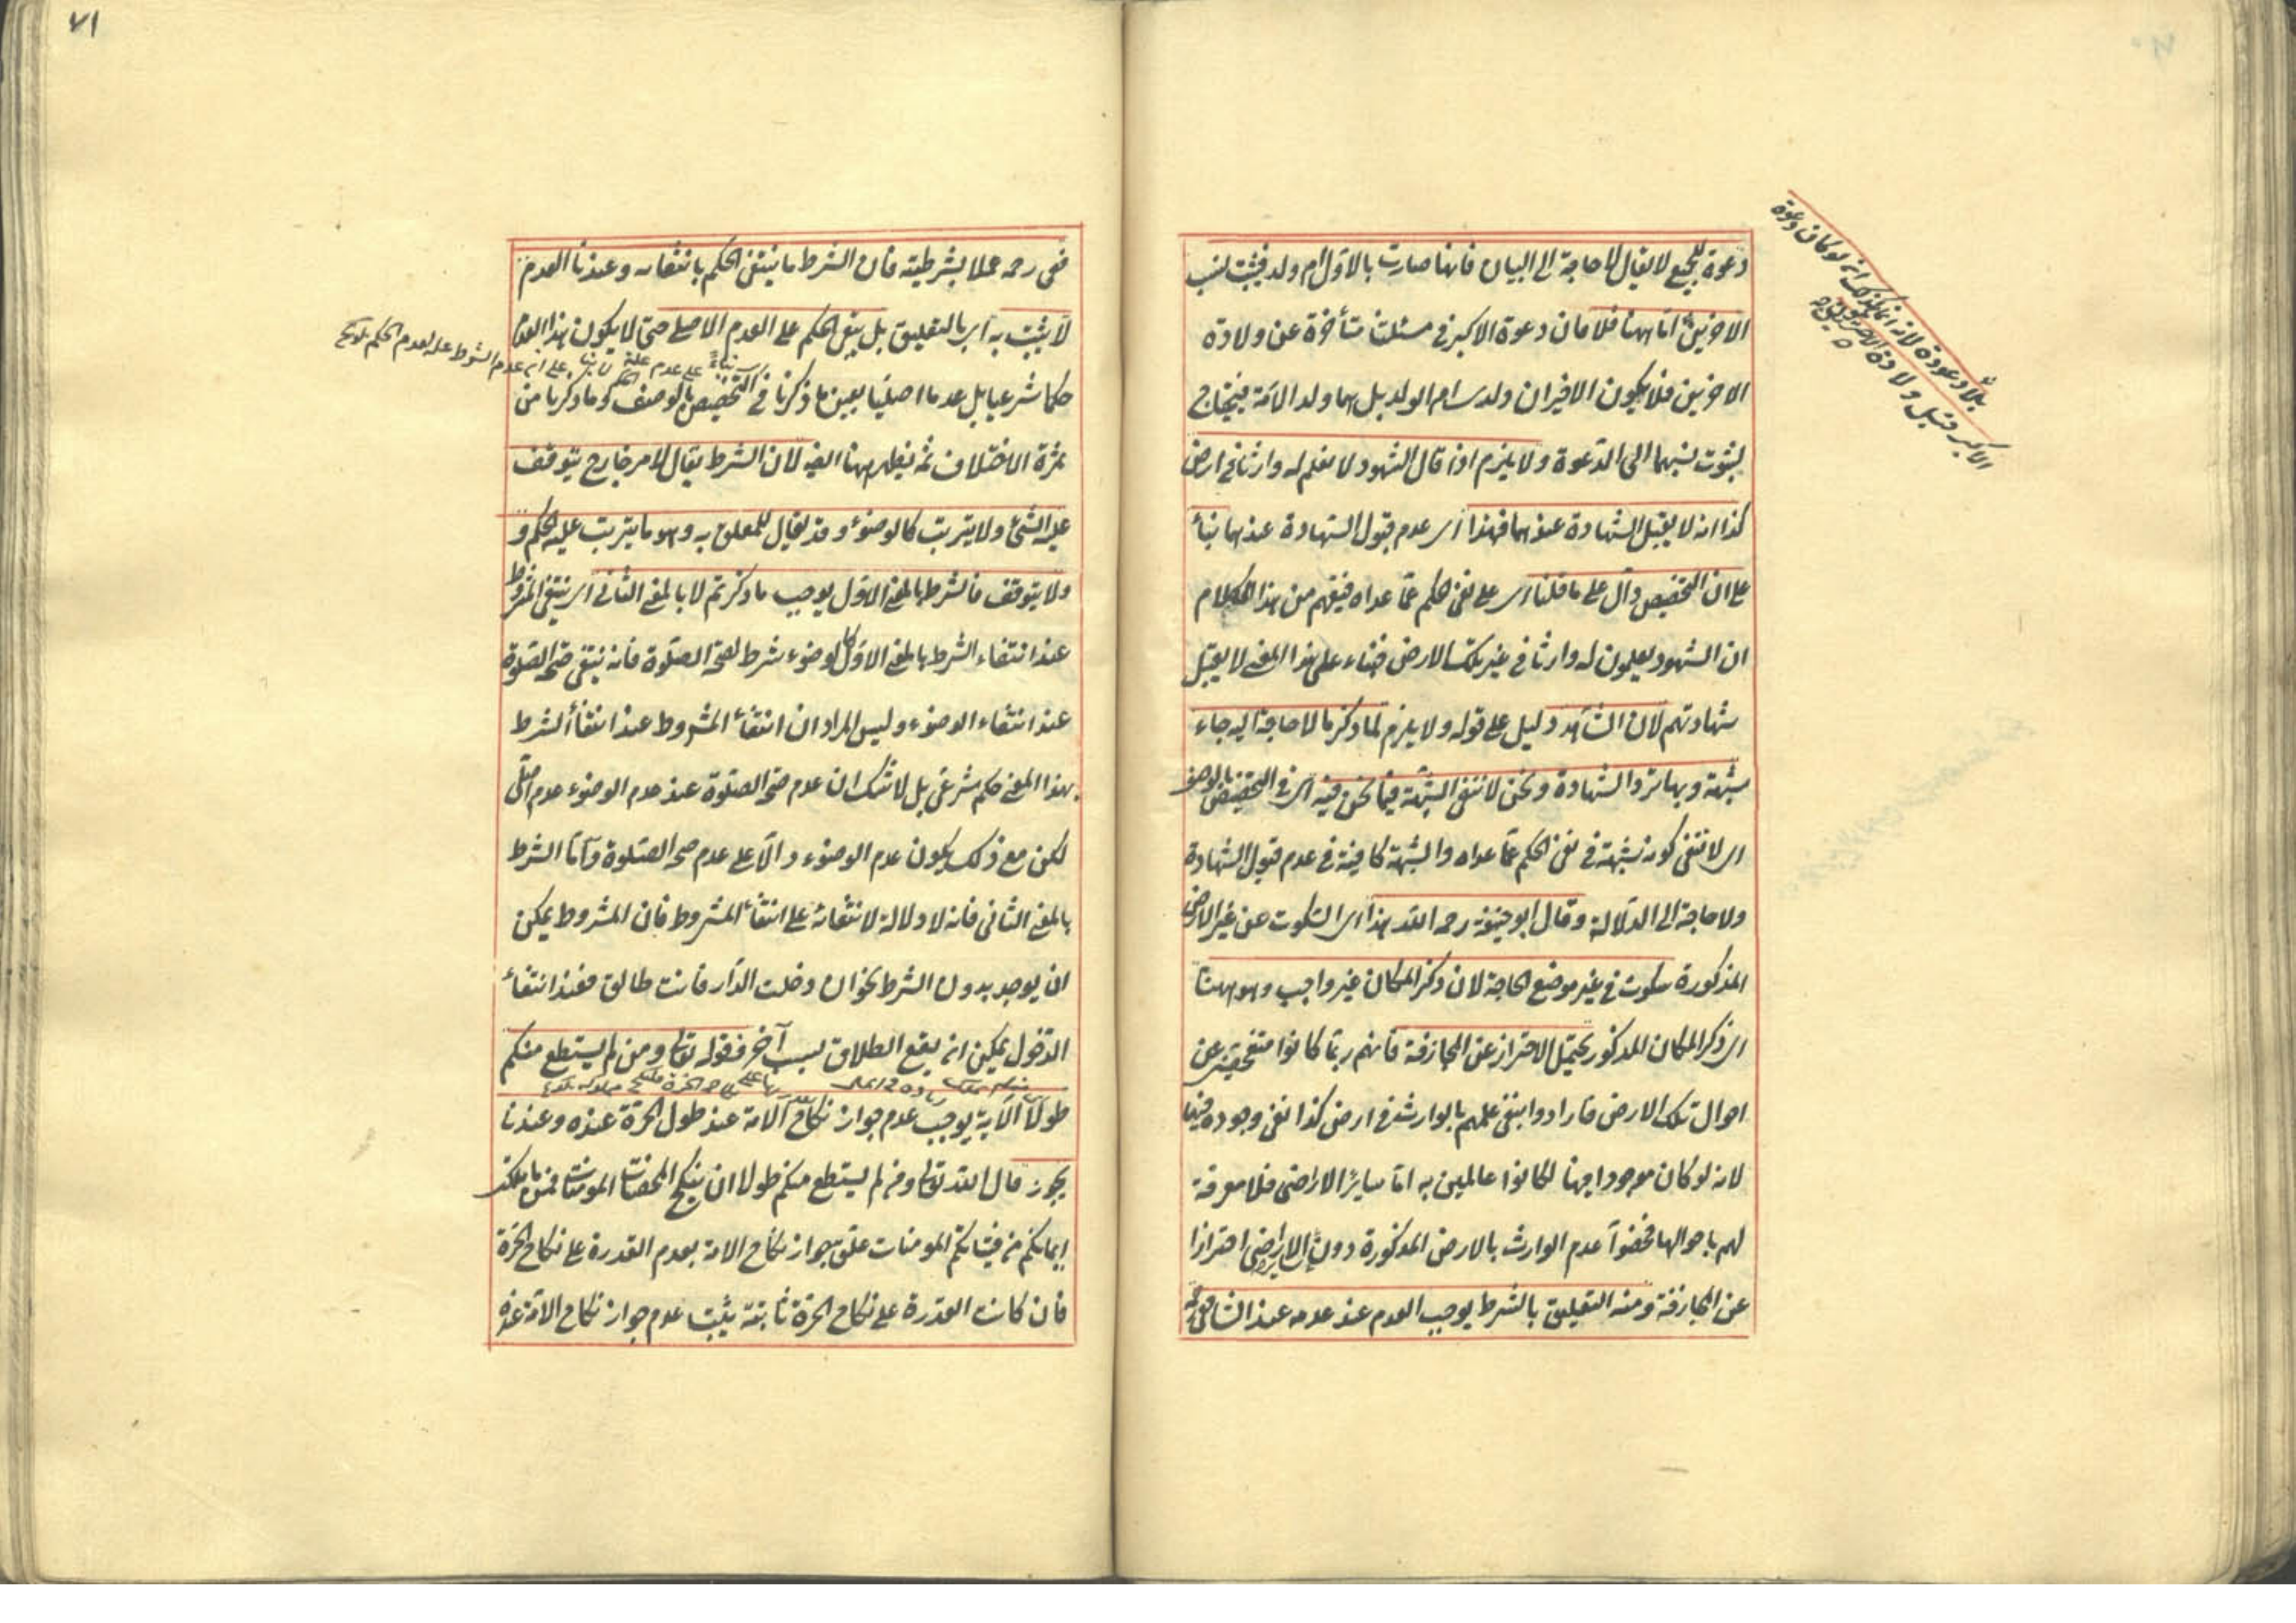 دعوة للجميع لا يقال لا حاجة الى البيان فانها صارت بالاول ام ولد فيثبت نسب
الاخرين اما ههنا فلا فان دعوة الاكبر في مسئلتنا متأخرة عن ولادة
الاخرين فلا يكون الاخيران ولدي ام الولد بل هما ولد الامة فيحتاج
لثبوت نسبهما الى الدعوة ولا يلزم اذا قال الشهود لا نعلم له وارثا في ارض
كذا انه لا يقبل الشهادة عندهما فهذا اى عدم قبول الشهادة عندهما بناء
على ان التخصيص دال على ما قلنا اى على نفى حكم عما عداه فيفهم من هذا الكلام
ان الشهود يعلمون له وارثا في غير تلك الارض فبناء على هذا المعنى لا يقبل
شهادتهم لان الشاهد دليل على قوله ولا يلزم لما ذكر ما لا حاجة اليه جاء
شبهة وبها ترد الشهادة ونحن لا ننفى الشبهة فيما نحن فيه اى في التخصيص بالوصف
اى لا ننفى كونه شبهة في نفى الحكم عما عداه والشبهة كافية في عدم قبول الشهادة
ولا حاجة الى الدلالة وقال ابو حنيفة رحمه الله هذا اى السكوت عن غير الارض
المذكورة سكوت في غير موضع الحاجة لان ذكر المكان غير واجب وهو ههنا
اى ذكر المكان المذكور يحتمل الاحتراز عن المجازفة فانهم ربما كانوا متفحصين عن
احوال تلك الارض فارادوا بنفى علمهم بالوارث في ارض كذا نفى وجوده فيها
لانه لو كان موجودا فيها لكانوا عالمين به اما سائر الاراضى فلا معرفة
لهم باحوالها فخصوا عدم الوارث بالارض المذكورة دون سائر الاراضى احترازا
عن المجازفة ومنه التعليق بالشرط يوجب العدم عند عدمه عند الشافعى
الاكبر قبل ولادة الاخرين
٧١
فعى رحمه عملا بشرطيته فان الشرط ما ينتفى الحكم بانتفائه وعندنا العدم
لا يثبت به اى بالتعليق بل يبقى الحكم على العدم الاصلى حتى لا يكون هذا العدم
حكما شرعيا بل عدما اصليا بعين ما ذكرنا في التخصيص بالوصف وما ذكرنا من
ثمرة الاختلاف ثمه يظهر ههنا ايضا لان الشرط يقال لامر خارج يتوقف
عليه الشئ ولا يترتب كالوضوء وقد يقال للمعلق به وهو ما يترتب عليه الحكم و
ولا يتوقف فالشرط بالمعنى الاول يوجب ما ذكرتم لا بالمعنى الثانى اى ينتفى المشروط
عند انتفاء الشرط بالمعنى الاول كالوضوء شرط لصحة الصلوة فانه ينتفى صحة الصلوة
عند انتفاء الوضوء وليس المراد ان انتفاء المشروط عند انتفاء الشرط
بهذا المعنى حكم شرعى بل لا شك ان عدم صحة الصلوة عند عدم الوضوء عدم اصلى
لكن مع ذلك يكون عدم الوضوء دالا على عدم صحة الصلوة واما الشرط
بالمعنى الثانى فانه لا دلالة لانتفائه على انتفاء المشروط فان المشروط يمكن
ان يوجد بدون الشرط نحو ان دخلت الدار فانت طالق فعند انتفاء
الدخول يمكن ان يقع الطلاق بسبب آخر فقوله تعالى ومن لم يستطع منكم
طولا الآية يوجب عدم جواز نكاح الامة عند طول الحرة عنده وعندنا
يجوز قال الله تعالى ومن لم يستطع منكم طولا ان ينكح المحصنات المؤمنات فمن ما ملكت
ايمانكم من فتياتكم المؤمنات علق جواز نكاح الامة بعدم القدرة على نكاح الحرة
فان كانت القدرة على نكاح الحرة ثابتة يثبت عدم جواز نكاح الامة عنده